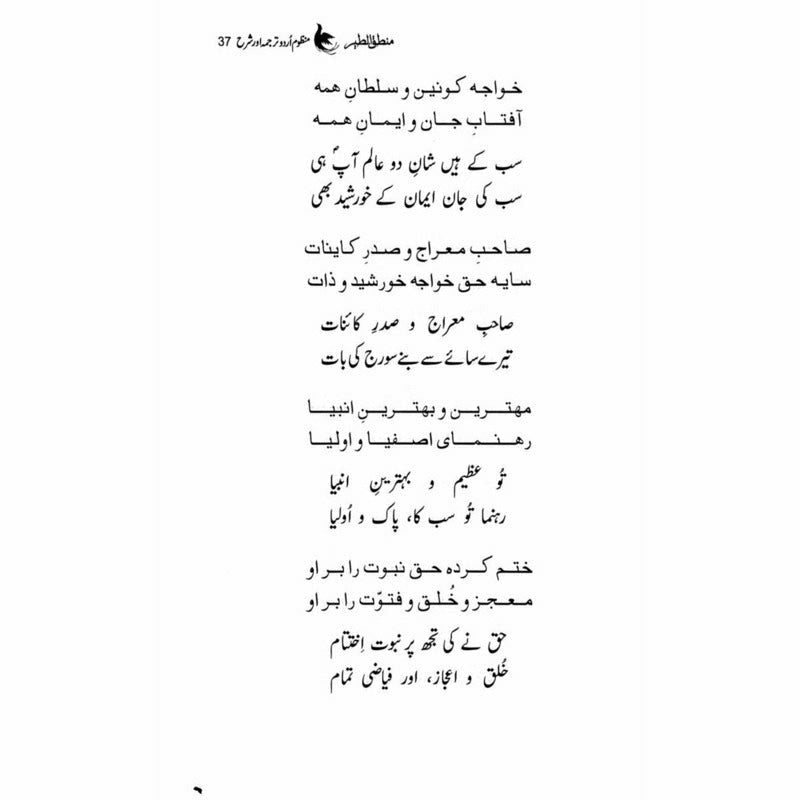 منطق الطیر منظوم اُردو ترجمہ اور شرح 37
خواجه کونین و سلطانِ همه
آفتابِ جان و ایمانِ همه
سب کے ہیں شانِ دو عالم آپؐ ہی
سب کی جان ایمان کے خورشید بھی
صاحبِ معراج و صدرِ کاینات
سایه حق خواجه خورشید و ذات
صاحبِ معراج و صدرِ کائنات
تیرے سائے سے بنے سورج کی بات
مهترین و بهترینِ انبیا
رهنمای اصفیا و اولیا
تُو عظیم و بہترینِ انبیا
رہنما تُو سب کا، پاک و اُولیا
ختم کرده حق نبوت را بر او
معجز و خُلق و فتوّت را بر او
حق نے کی تجھ پر نبوت اِختتام
خُلق و اعجاز، اور فیاضی تمام